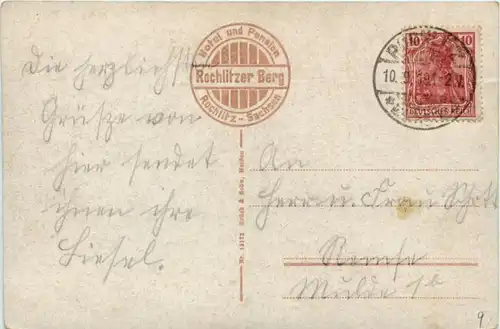 Die herzlichsten
Grüsze von
hier sendet
ihnen ihre
Liesel.
Hotel und Pension
Rochlitzer Berg
Rochlitz - Sachsen
Nr. 15172 Brück & Sohn, Meißen
10
10
10. 9. 19. 2-
DEUTSCHES
An
Herr u. Frau
Remse
Mulde
9